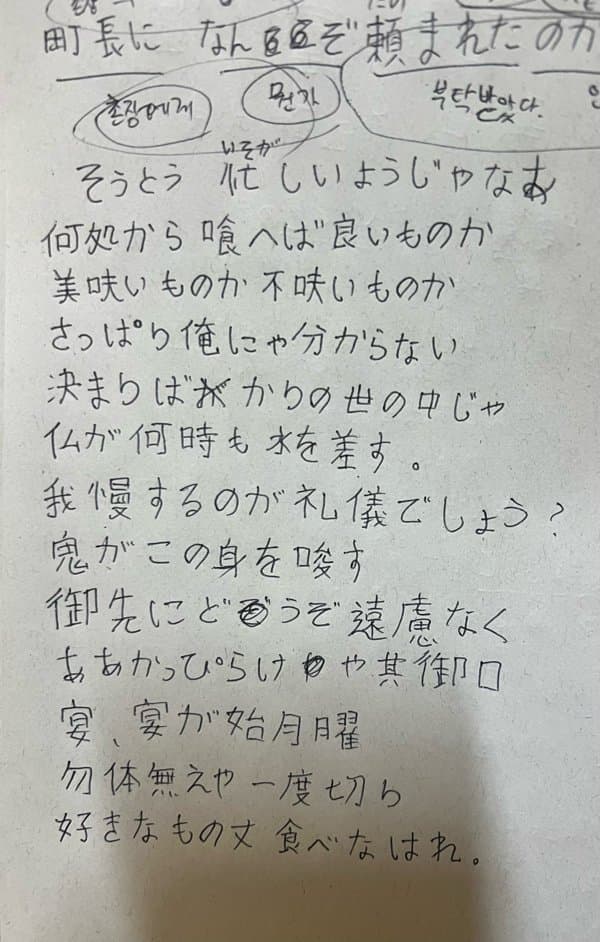 町長に なんぞ頼まれたのか
촌장에게 뭔가 부탁받았다.
いそが
そうとう 忙しいようじゃなあ
何処から 喰へば良いものか
美味いものか 不味いものか
さっぱり俺にゃ分からない
決まりばかりの世の中じゃ
仏が何時も水を差す。
我慢するのが礼儀でしょう?
鬼がこの身を唆す
御先にどうぞ遠慮なく
ああかっぴらけや其御口
宴、宴が始月曜
勿体無えや一度切ら
好きなもの丈 食べなはれ。